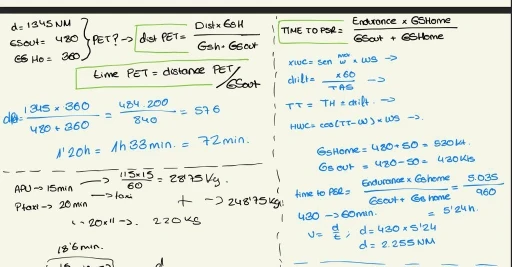 d=1345NM
GSout= 480
GS Ho= 360
PET? → dist PET= Dist×GSH / GSh+GSout
time PET = distance PET / GSout
1345 × 360 / 480 + 360 = 484.200 / 840 = 576
1'20h = 1h33min. = 72min.
APU → 15min → 115×15 / 60 = 28'75 kg.
Ptaxi → 20 min → taxi + → 248'75 kg
20×11 → 220 kg
18'6min.
d
TIME TO PSR = Endurance × GSHome / GSout + GSHome
XWC = sen × WS →
drift = ×60 / TAS →
TT = TH ± drift. →
HWC = cos(TT-W) × WS →.
GSHome = 480+50 = 530kt.
GS out = 480-50 = 430kts
time to PSR = Endurance·GShome / GSout + GS home = 5.035 / 960
= 5'24h.
430 → 60min.
V = d / t ; d = 430 × 5'24
d = 2.255 NM